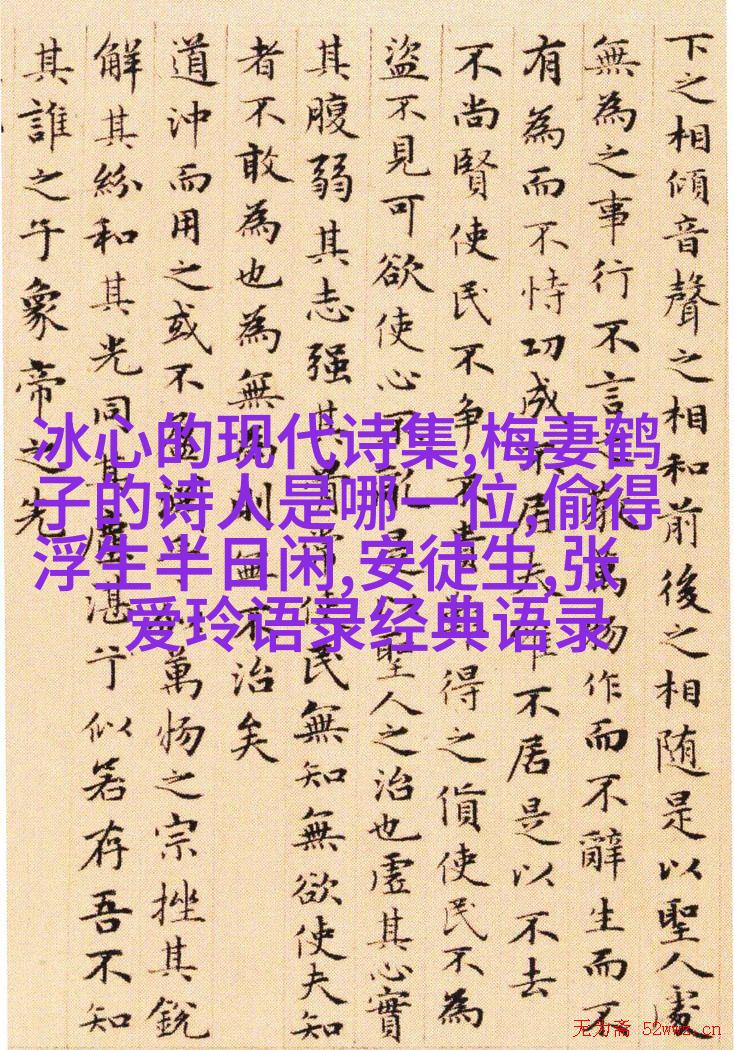 下之相傾音聲之相和前後之相随是以聖人處
無為之事行不言之教萬物作而不辭生而不
有為而不恃功成不居夫唯不居是以不去
不尚賢使民不争不貴難得之貨使民不為
盜不見可欲使心不亂是以聖人之治也虛其心實
其腹弱其志强其骨常使民無知無欲使夫知
者不敢為也為無為則無不治矣
道沖而用之或不盈乎萬物之宗挫其銳
解其紛和其光同其塵湛兮似若存吾不知
其誰之子象帝之先
冰心的现代诗集,梅妻鹤
子的诗人是哪一位,偷得
浮生半日闲,安徒生,张
爱玲语录经典语录
无为斋 52wwz.cn